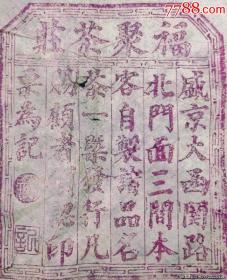 7788.com
福聚茶莊
盛京大西關路
北門面三間本
客自製諸品名
茶一槩發行凡
賜顧者認印
票為記